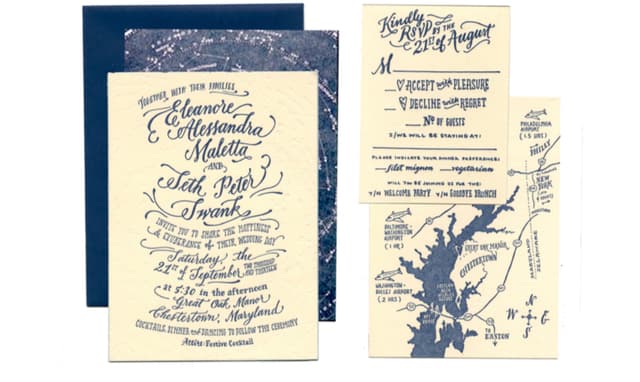 TOGETHER WITH THEIR FAMILIES
Eleanore
Alessandra
Maletta
AND
Seth Peter
Swank
INVITE YOU TO SHARE THE HAPPINESS
& EXUBERANCE of THEIR WEDDING DAY
Saturday, the
21st of September TWO THOUSAND AND THIRTEEN
at 5:30 in the afternoon
Great Oak Manor
Chestertown, Maryland
COCKTAILS, DINNER and DANCING TO FOLLOW THE CEREMONY
Attire: Festive Cocktail
Kindly
RSVP BY THE
21st of August
M
ACCEPT with PLEASURE
DECLINE with REGRET
No of GUESTS
I/WE WILL BE STAYING AT:
PLEASE INDICATE YOUR DINNER PREFERENCE:
filet mignon vegetarian
WILL YOU BE JOINING US FOR THE:
Y/N WELCOME PARTY Y/N GOODBYE BRUNCH
PHILADELPHIA
AIRPORT
(1.5 HRS)
TO PHILLY
NEW
YORK
BALTIMORE-
WASHINGTON
AIRPORT
(1 HR)
GREAT OAK MANOR
CHESTERTOWN
MARYLAND
DELAWARE
WASHINGTON-
DULLES AIRPORT
(2 HRS)
BAY BRIDGE
TO
EASTON
N
W E
S